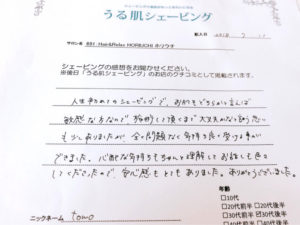 うる肌シェービング
記入日
サロン名 881 Hair&Relax HORIUCHI ホリウチ
シェービングの感想をお聞かせください。
※後日「うる肌シェービング」のお店のクチコミとして掲載されます。
人生初めてのシェービングで、お肌もどちらかと言えば
敏感な方なので 施術して頂くまで大丈夫かなって 思い
も少しありましたが 全く問題なく気持ち良く受ける事が
できました。心配な気持ちもちゃんと理解してお話しも色々
してくださったので、安心感もとてもありました。ありがとうございました。
年齢
□10代
□20代前半 □20代後半
□30代前半 ☑30代後半
□40代前半 □40代後半
ニックネーム tomo